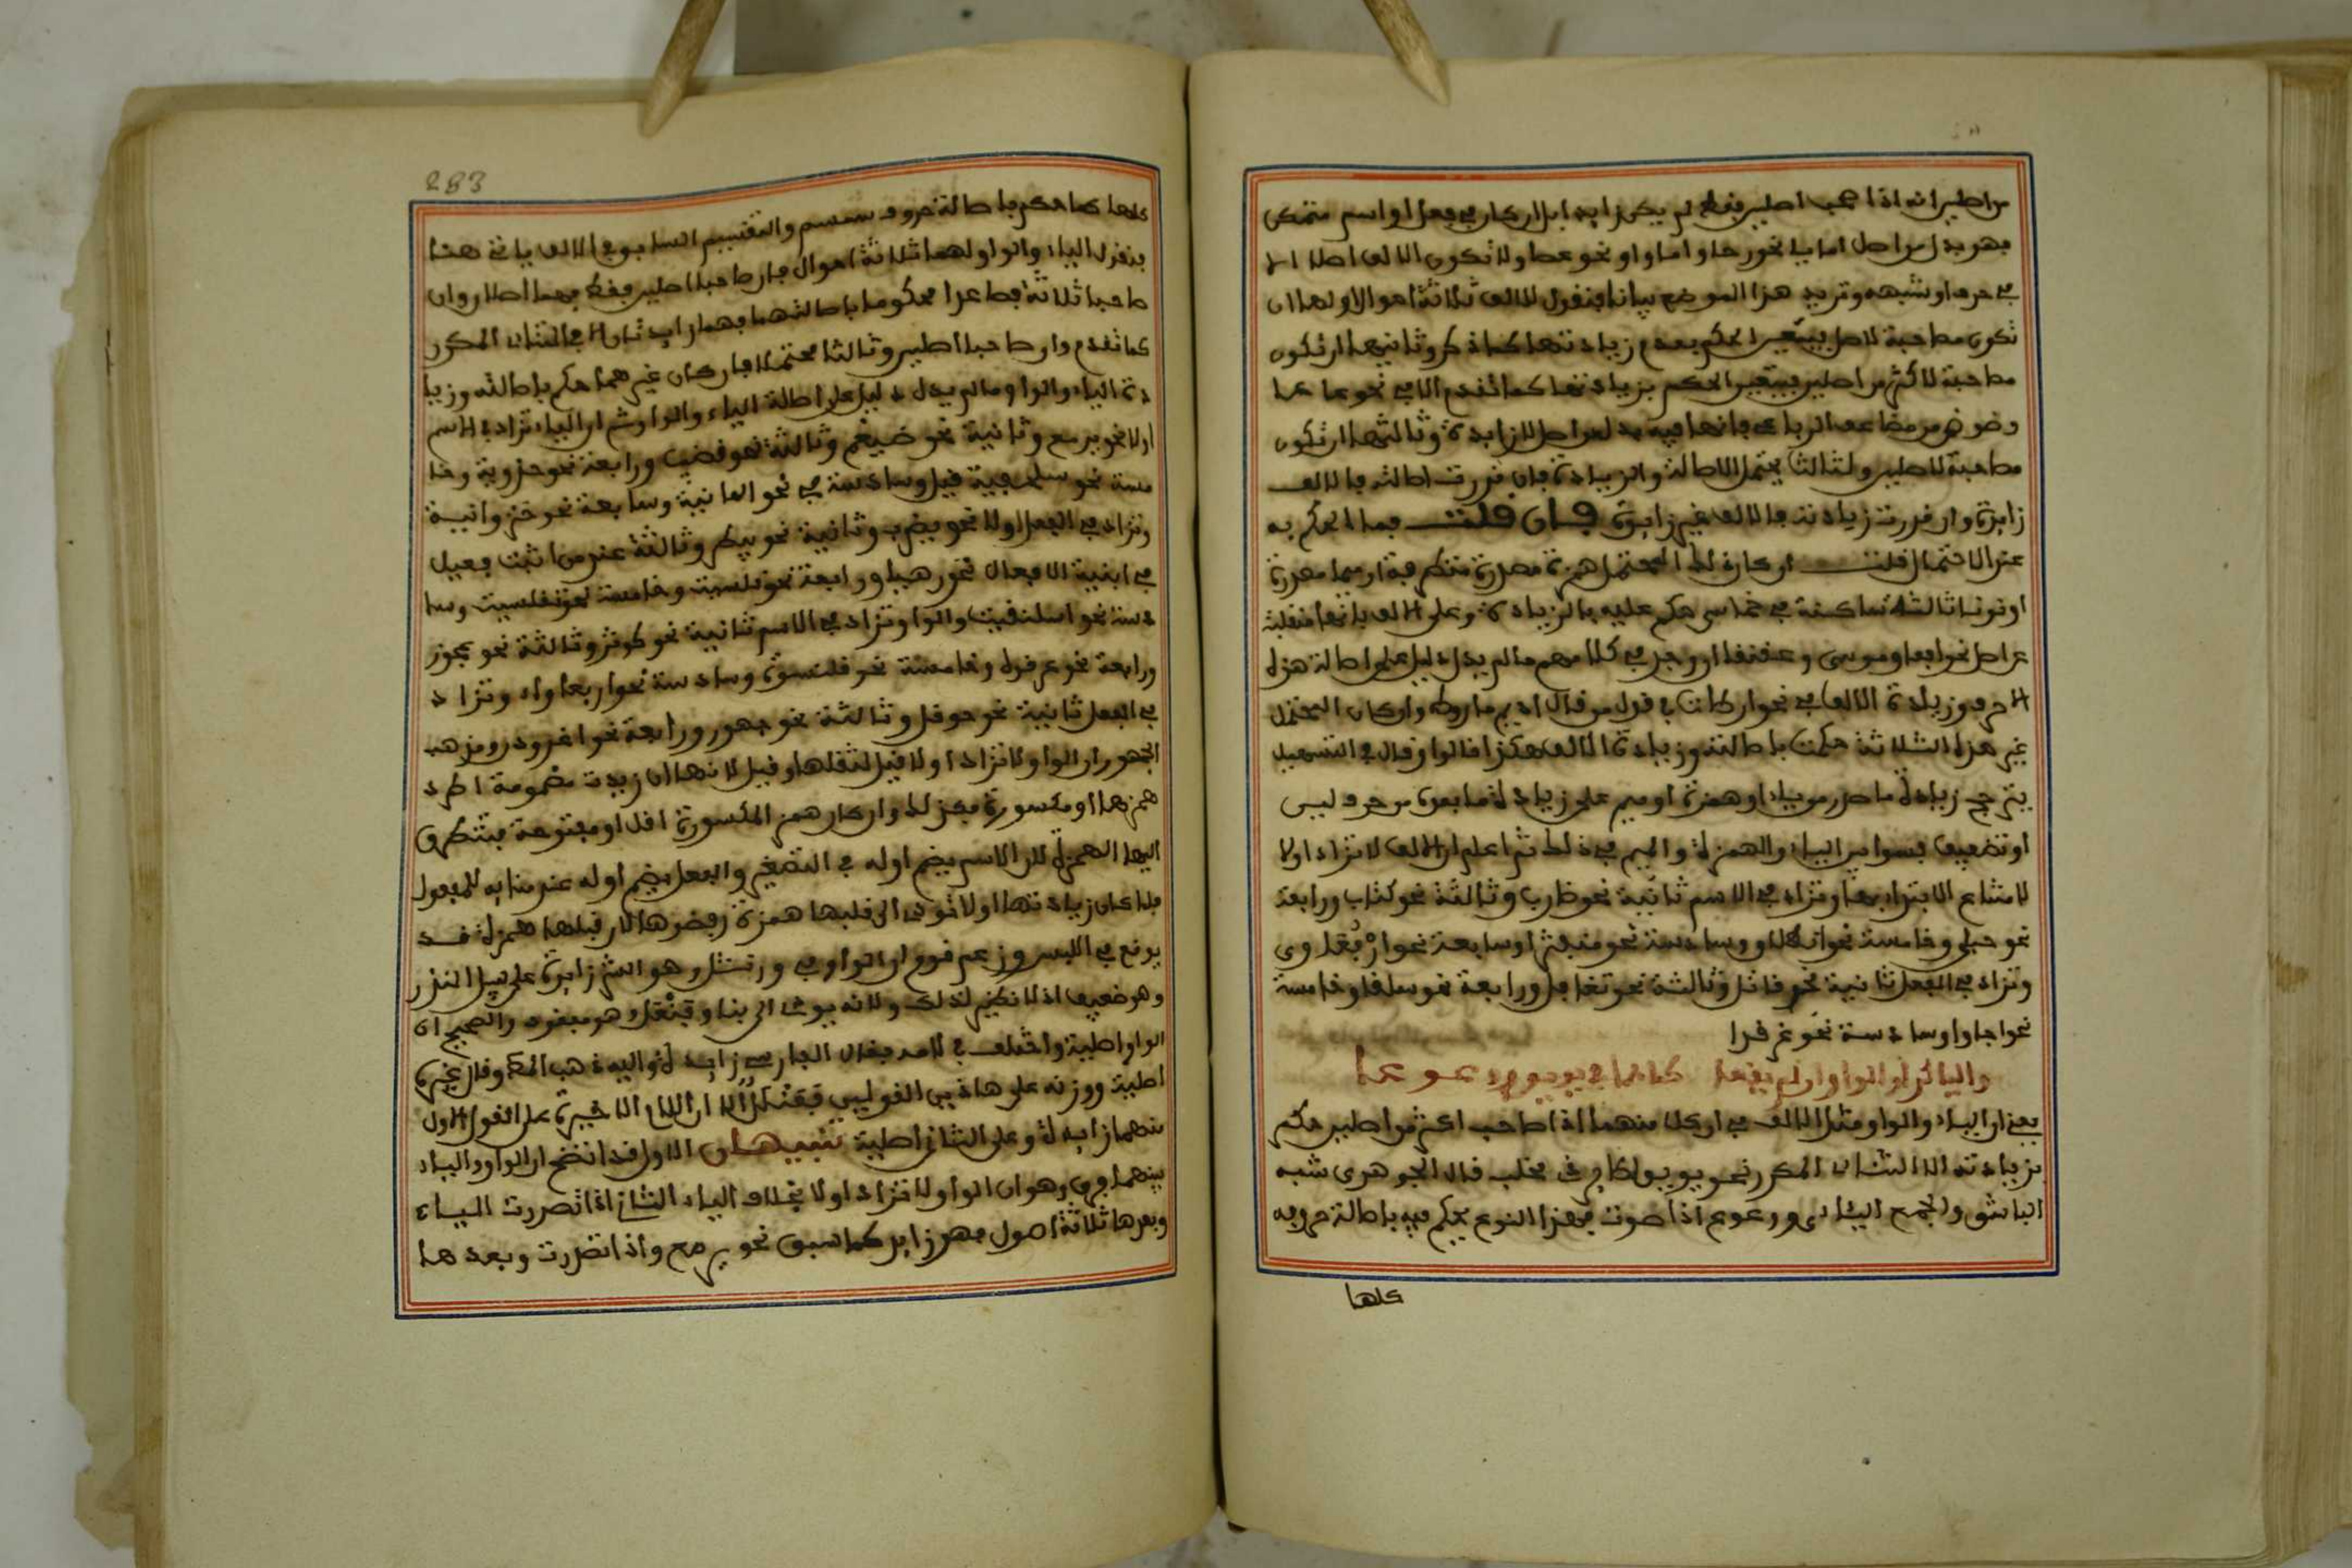 من اصلين انه اذا صحب اصلين فقط لم يكن زايدا بل ان كان في فعل او اسم متمكن
فهو بدل من اصل اما ياء نحو رحا واما واو نحو عصا ولا تكون الالف اصلا الا
في حرف او شبهه وتريد هذا الموضع بيانا فنقول للالف ثلاثة احوال اولها ان
تكون مصاحبة لاصلين فيتعين الحكم بعدم زيادتها كما ذكر وثانيها ان تكون
مصاحبة لاكثر من اصلين فيتعين الحكم بزيادتها كما تقدم الا في نحو عاعا
وضوضى من مضاعف الرباعي فانها فيه بدل من اصل لا زايدة وثالثها ان تكون
مصاحبة لاصلين ولثالث يحتمل الاصالة والزيادة فان قدرت اصالته فالالف
زايدة وان قدرت زيادته فالالف غير زايدة فان قلت فما المحكم به
عند الاحتمال قلت ان كان ذلك المحتمل همزة مصدرة متطرفة او ميما مصدرة
او نونا ثالثة ساكنة في خماسي حكم عليه بالزيادة وعلى الالف بانها منقلبة
عن اصل نحو افعا وموسى وعقنقا ان وجد في كلامهم ما لم يدل دليل على اصالة هذه
الاحرف وزيادة الالف في نحو ارطان في قول من قال اديم ماروط وان كان المحتمل
غير هذه الثلاثة حكمت باصالته وزيادة الالف هكذا قالوا وقال في التسهيل
يترجح زيادة ما صدر من ياء او همزة او ميم على زيادة ما بعده من حرف لين
او تضعيف فسوا بين الياء والهمزة والميم في ذلك ثم اعلم ان الالف لا تزاد اولا
لامتناع الابتداء بها وتزاد في الاسم ثانية نحو ضارب وثالثة نحو كتاب ورابعة
نحو حبلى وخامسة نحو انطلاق وسادسة نحو قبعثرا وسابعة نحو اربعاوى
وتزاد في الفعل ثانية نحو قاتل وثالثة نحو تغافل ورابعة نحو سلقا وخامسة
نحو اجاوا وسادسة نحو اغرندا
واليا كذا والواو ان لم يقعا كما هما في يويو ووعوعا
يعني ان الياء والواو مثل الالف في ان كلا منهما اذا صاحب اكثر من اصلين حكم
بزيادته الا الثنائي المكرر نحو يويو لطاير ذي مخلب قال الجوهري شبه
الباشق والجمع اليئايي ووعوع اذا صوت فهذا النوع يحكم فيه باصالة حروفه
كلها
283
كلها كما حكم باصالة حروف سمسم والتقسيم السابق في الالف ياتي هنا
فنقول الياء والواو لهما ثلاثة احوال فان صاحبا اصلين فقط فهما اصلان وان
صاحبا ثلاثة فصاعدا محكوما باصالتها فهما زايدتان الا في الثنائي المكرر
كما تقدم وان صاحبا اصلين وثالثا محتملا فان كان غيرهما حكم باصالته وزيا
دة الياء والواو ما لم يدل دليل على اصالة الياء والواو ثم ان الياء تزاد في الاسم
اولا نحو يرمع وثانية نحو ضيغم وثالثة نحو قضيب ورابعة نحو حذرية وخا
مسة نحو سلحفية قيل وسادسة في نحو الما نية وسابعة نحو خنزوانية
وتزاد في الفعل اولا نحو يضرب وثانية نحو بيطر وثالثة عند من اثبت فعيل
في ابنية الافعال نحو رهيا ورابعة نحو قلسيت وخامسة نحو تقلسيت وسا
دسة نحو اسلنقيت والواو تزاد في الاسم ثانية نحو كوثر وثالثة نحو عجوز
ورابعة نحو عرقوة وخامسة نحو قلنسوة وسادسة نحو اربعاواء وتزاد
في الفعل ثانية نحو حوقل وثالثة نحو جهور ورابعة نحو اغرودن ومذهب
الجمهور ان الواو لا تزاد اولا قيل لثقلها وقيل لانها ان زيدت مضمومة اطرد
همزها او مكسورة فكذلك وان كان همز المكسورة اقل او مفتوحة فيتطرق
اليها الهمز لان الاسم يضم اوله في التصغير والفعل يضم اوله عند بنايه للمفعول
فلما كان زيادتها اولا تودي الى قلبها همزة رفضوها لان قلبها همزة قد
يوقع في اللبس وزعم قوم ان الواو في ورنتل وهو الشر زايدة على سبيل الندور
وهو ضعيف اذ لا نظير لذلك ولانه يودي الى بناء وفنعل وهو مفقود والصحيح ان
الواو اصلية واختلف في لامه فقال الفارسي زايدة واليه ذهب المص وقال غيره
اصلية ووزنه على هاذين القولين فعنلل الا ان اللام الاخيرة على القول الاول
منهما زايدة وعلى الثاني اصلية تنبيهان الاول قد اتضح ان الواو والياء
بينهما فرق وهو ان الواو لا تزاد اولا بخلاف الياء الثاني اذا تصدرت الياء
وبعدها ثلاثة اصول فهي زايدة كما سبق نحو يرمع واذا تصدرت وبعدها